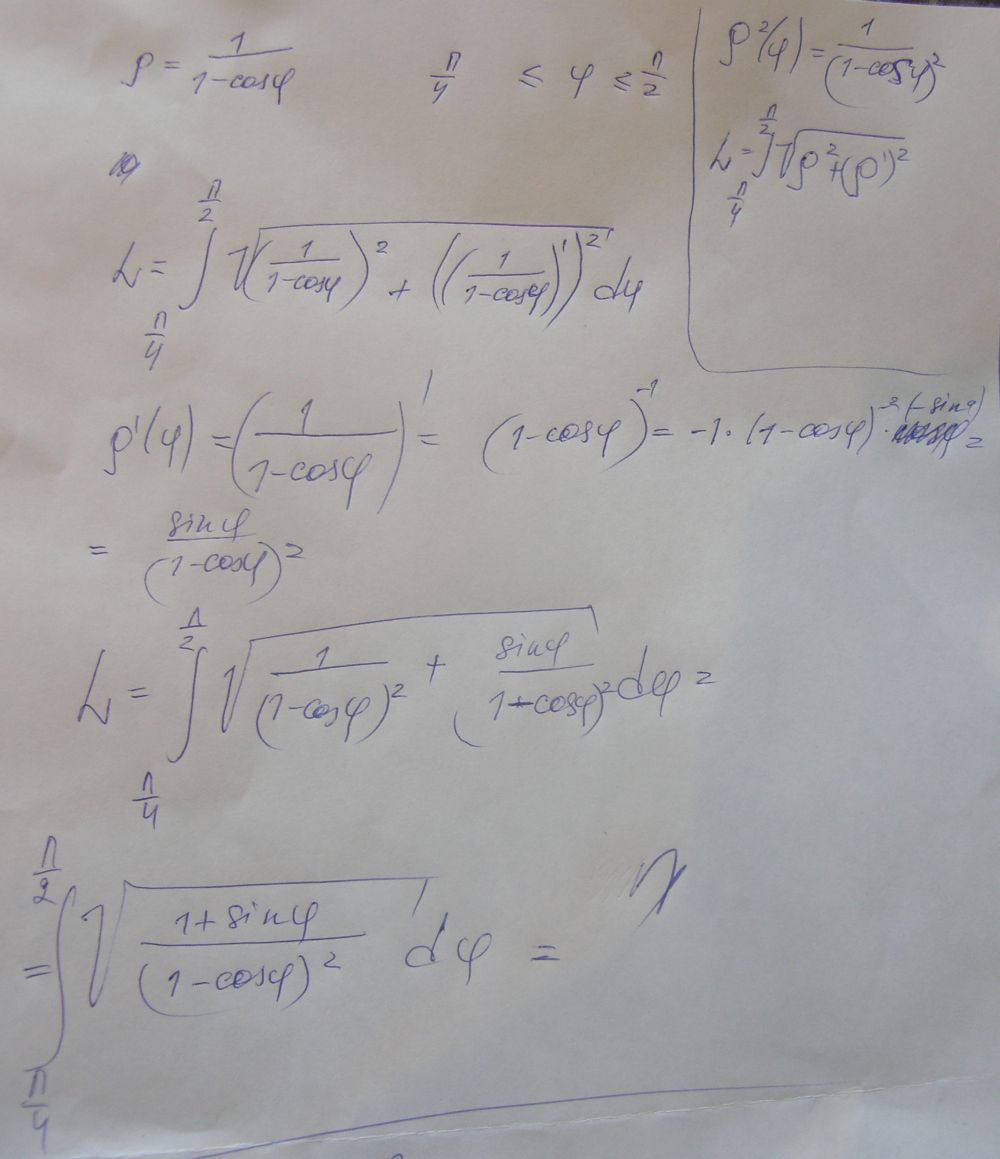 ρ = 1/(1-cosφ)    π/4 ≤ φ ≤ π/2
ρ²(φ) = 1/(1-cosφ)²
L = ∫_{π/4}^{π/2} √(ρ²+(ρ')²)
L = ∫_{π/4}^{π/2} √((1/(1-cosφ))² + ((1/(1-cosφ))')²) dφ
ρ'(φ) = (1/(1-cosφ))' = (1-cosφ)^{-1} = -1·(1-cosφ)^{-2}·(-sinφ) =
= sinφ/(1-cosφ)²
L = ∫_{π/4}^{π/2} √(1/(1-cosφ)² + sinφ/(1-cosφ)²) dφ =
= ∫_{π/4}^{π/2} √((1+sinφ)/(1-cosφ)²) dφ =